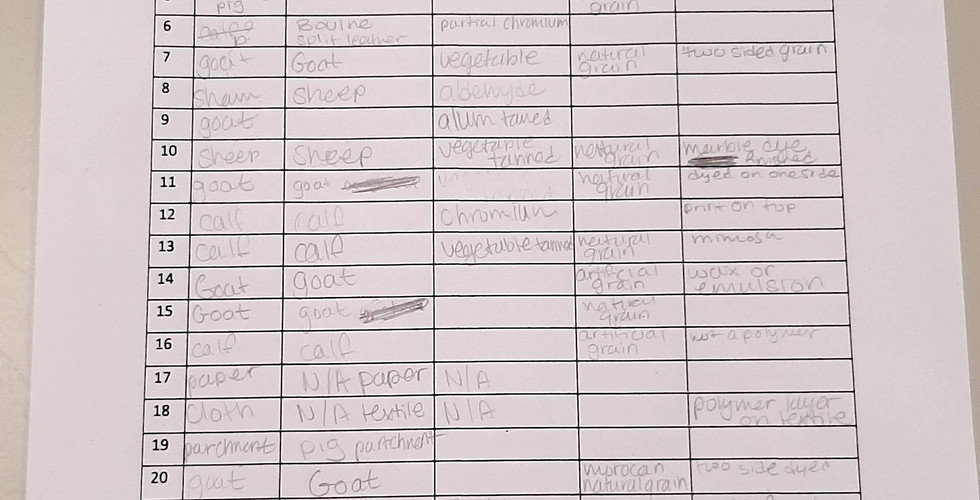 pig grain
6 Bovine split leather partial chromium
7 goat Goat vegetable natural grain two sided grain
8 sham sheep aldehyde
9 goat alum taned
10 sheep Sheep vegetable tanned natural grain marble dye
11 goat goat natural grain dyed on one side
12 calf calf chromium print on top
13 calf calf vegetable tanned natural grain mimosa
14 Goat goat artificial grain wax or emulsion
15 Goat goat natural grain
16 calf calf artificial grain not a polymer
17 paper N/A paper N/A
18 cloth N/A textile N/A polymer layer on textile
19 parchment pig partchment
20 goat Goat morocan natural grain two side dyed